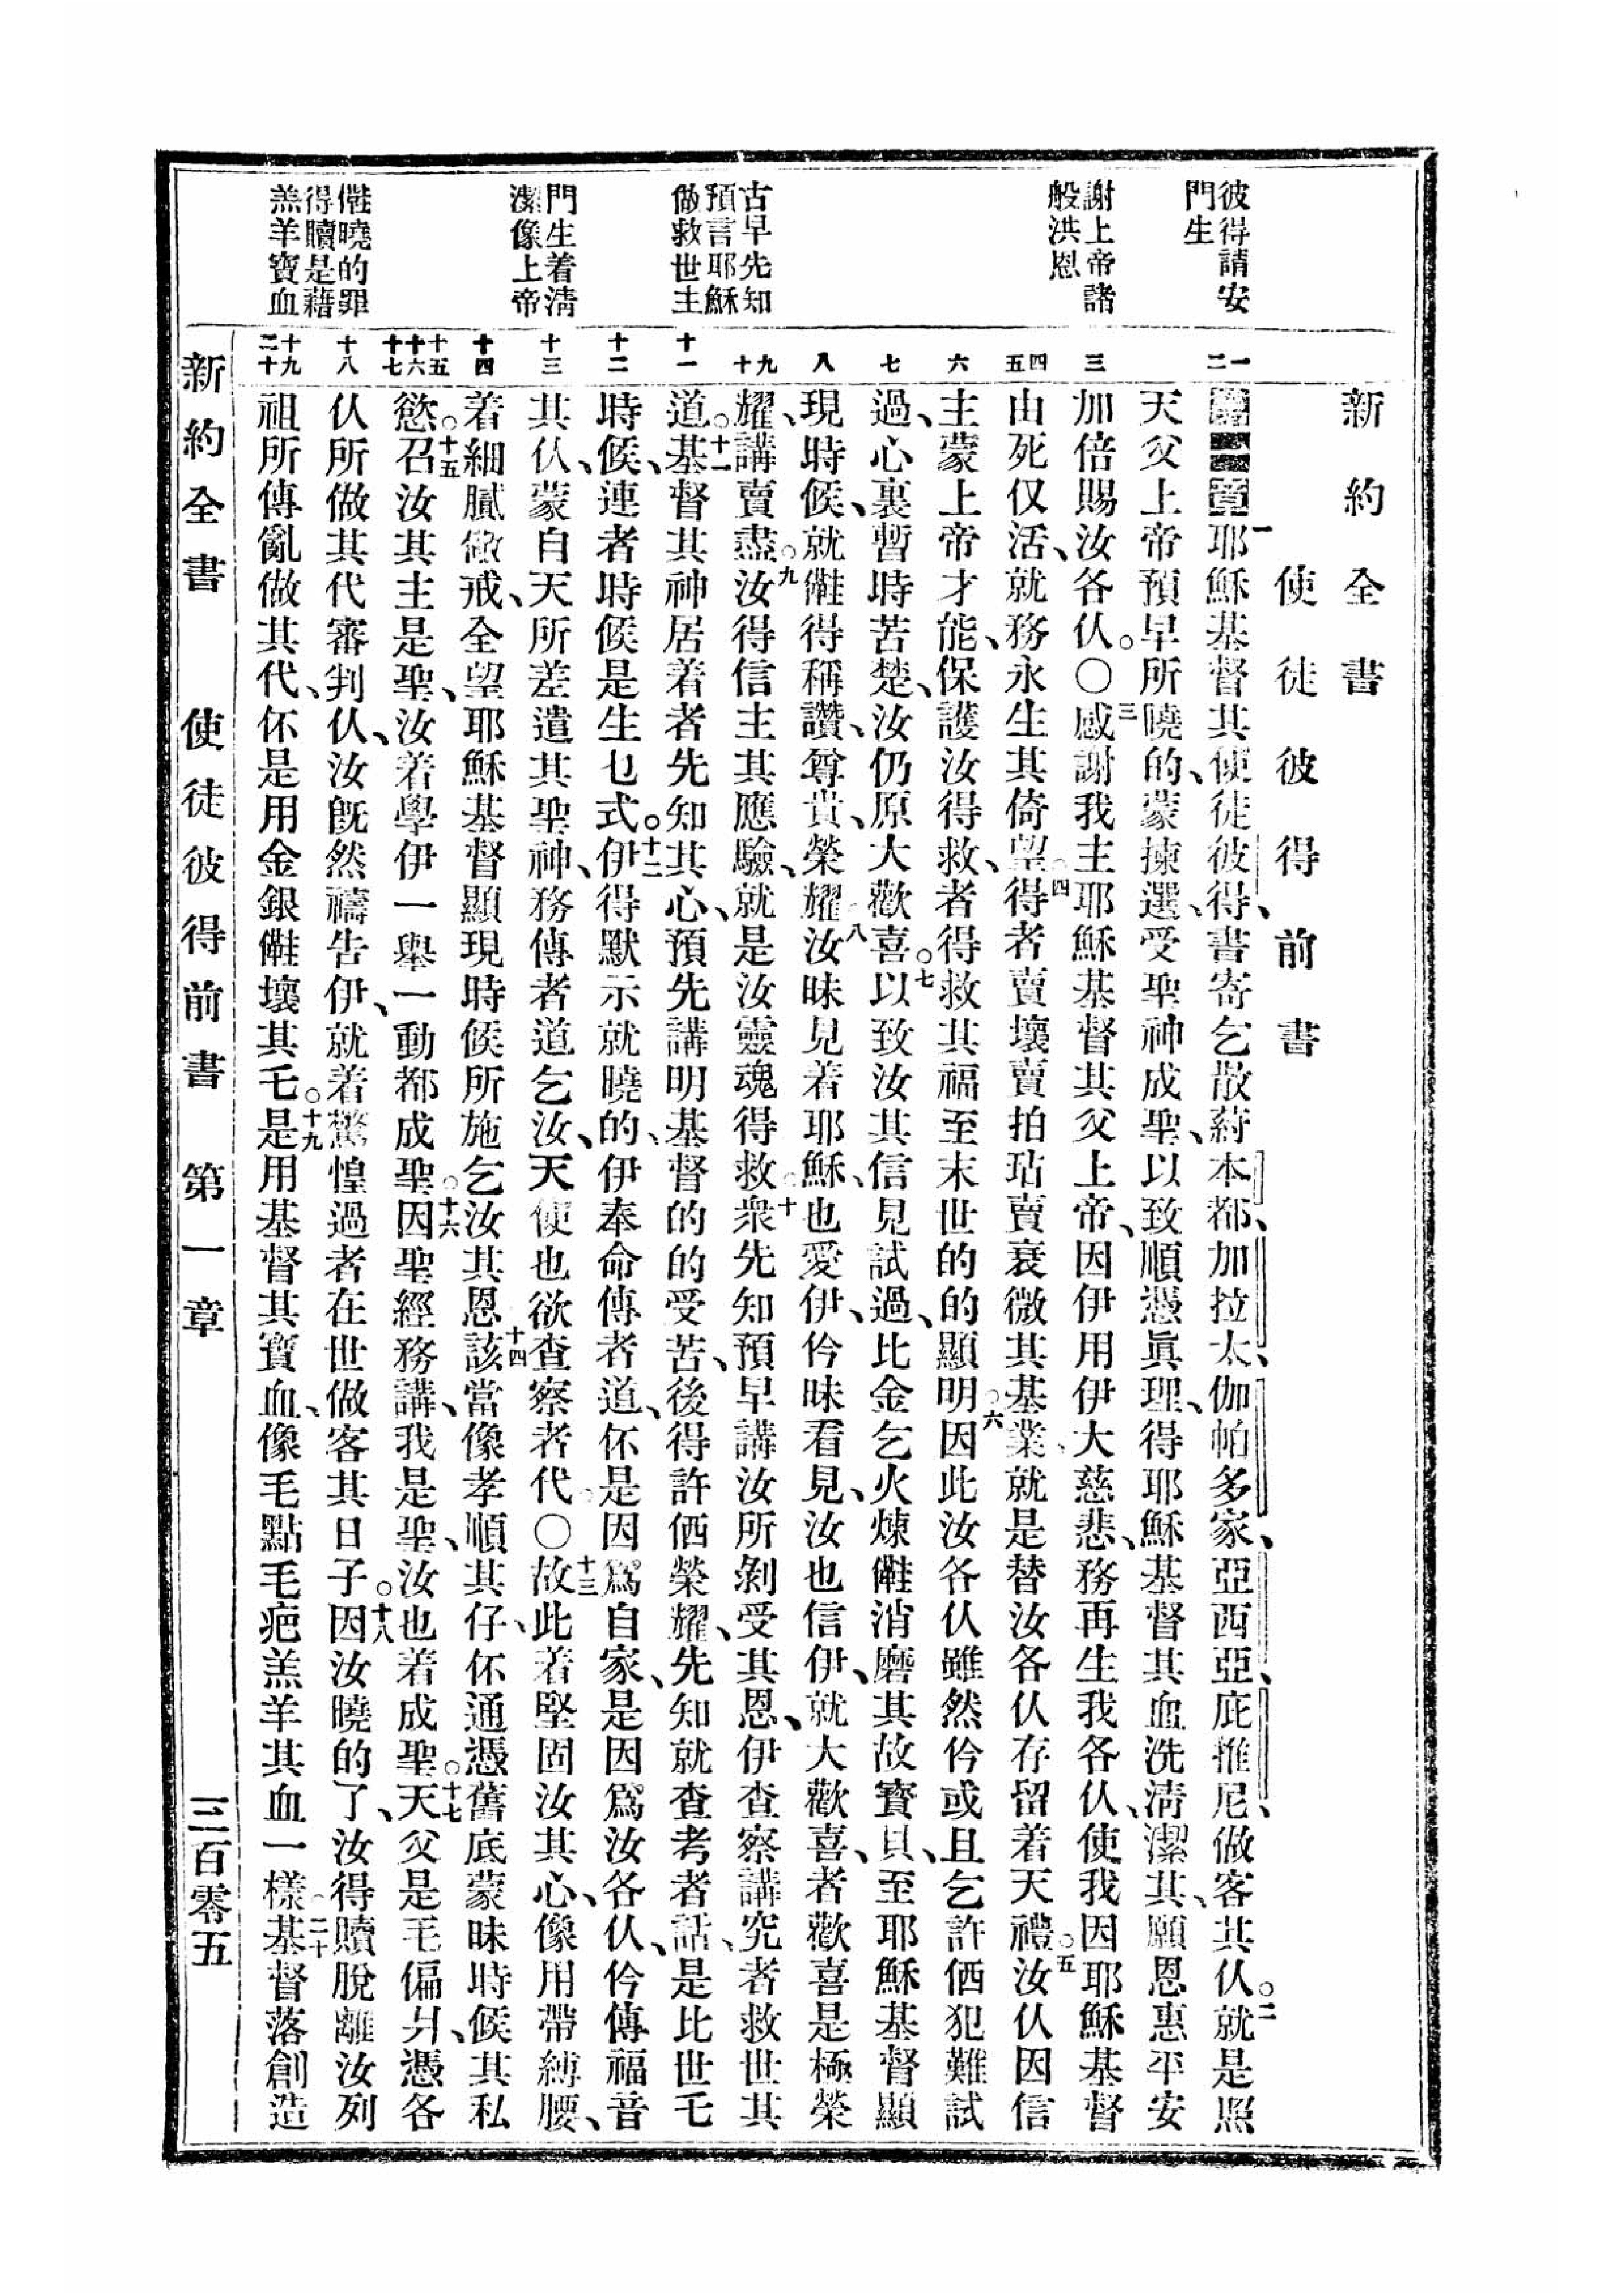 新約全書
使徒彼得前書
彼得請安
門生
謝上帝諸
般洪恩
古早先知
預言耶穌
做救世主
門生着清
潔像上帝
僫曉的罪
得贖是藉
羔羊寶血
一
二
三
四
五
六
七
八
九
十
十一
十二
十三
十四
十五
十六
十七
十八
十九
二十
第一章一耶穌基督其使徒彼得、書寄乞散蒔本都、加拉太、伽帕多家、亞西亞、庇推尼、做客其仈。二就是照
天父上帝預早所曉的、蒙揀選、受聖神成聖、以致順憑眞理、得耶穌基督其血洗清潔其、願恩惠平安
加倍賜汝各仈。〇三感謝我主耶穌基督其父上帝、因伊用伊大慈悲、務再生我各仈、使我因耶穌基督
由死仅活、就務永生其倚望。四得者賣壞賣拍玷賣衰微其基業、就是替汝各仈存留着天禮。五汝仈因信
主蒙上帝才能、保護汝得救、者得救其福至末世的的顯明。六因此汝各仈雖然仱或且乞許伵犯難試
過、心裏暫時苦楚、汝仍原大歡喜。七以致汝其信見試過、比金乞火煉㑽消磨其故寳貝、至耶穌基督顯
現時候、就㑽得稱讚、尊貴、榮耀。八汝昧見着耶穌、也愛伊、仱昧看見、汝也信伊、就大歡喜、者歡喜是極榮
耀、講賣盡。九汝得信主其應驗、就是汝靈魂得救。十衆先知預早講汝所剝受其恩、伊查察講究者救世其
道。十一基督其神居着者先知其心、預先講明基督的的受苦、後得許伵榮耀、先知就查考者話、是比世乇
時候、連者時候是生乜式。十二伊得默示就曉的、伊奉命傳者道、伓是因爲自家、是因爲汝各仈、仱傳福音
其仈、蒙自天所差遣其聖神、務傳者道乞汝、天使也欲查察者代。〇十三故此着堅固汝其心、像用帶縛腰、
着細膩儆戒、全望耶穌基督顯現時候所施乞汝其恩。十四該當像孝順其仔、伓通憑舊底蒙昧時候其私
慾。十五召汝其主是聖、汝着學伊一舉一動都成聖。十六因聖經務講、我是聖、汝也着成聖。十七天父是毛偏爿、憑各
仈所做其代審判仈、汝旣然禱告伊、就着驚惶過者在世做客其日子。十八因汝曉的了、汝得贖脫離汝列
祖所傳亂做其代、伓是用金銀㑽壞其乇。十九是用基督其寶血、像毛點毛疤羔羊其血一樣。二十基督落創造
新約全書 使徒彼得前書 第一章 三百零五